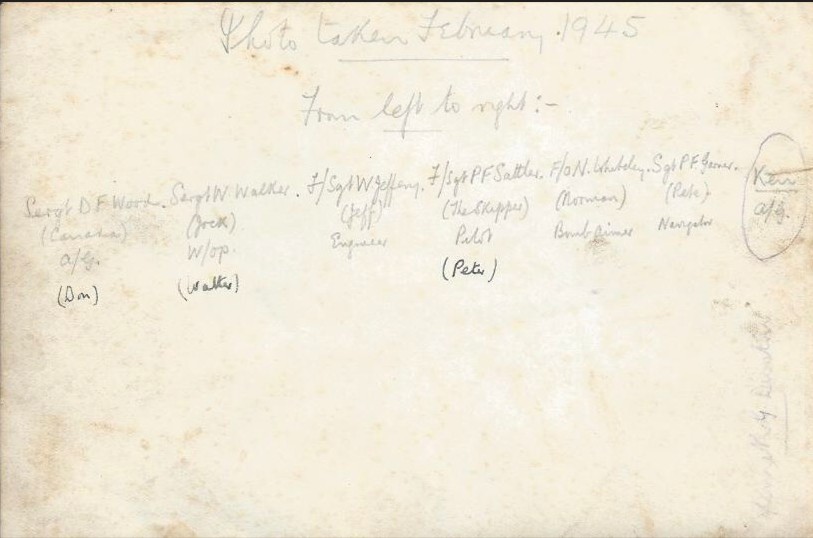 Photo taken February. 1945
From left to right :-
Sergt D F Wood. Sergt W Walker. F/Sgt W Jeffery. F/sgt P F Sattler. F/O N. Whiteley. Sgt P F Garner. Kerr
(Canada) (Jock) (Jeff) (The Skipper) (Norman) (Pete) a/g.
a/g. W/op. Engineer Pilot Bomb aimer Navigator
(Don) (Walter) (Peter)